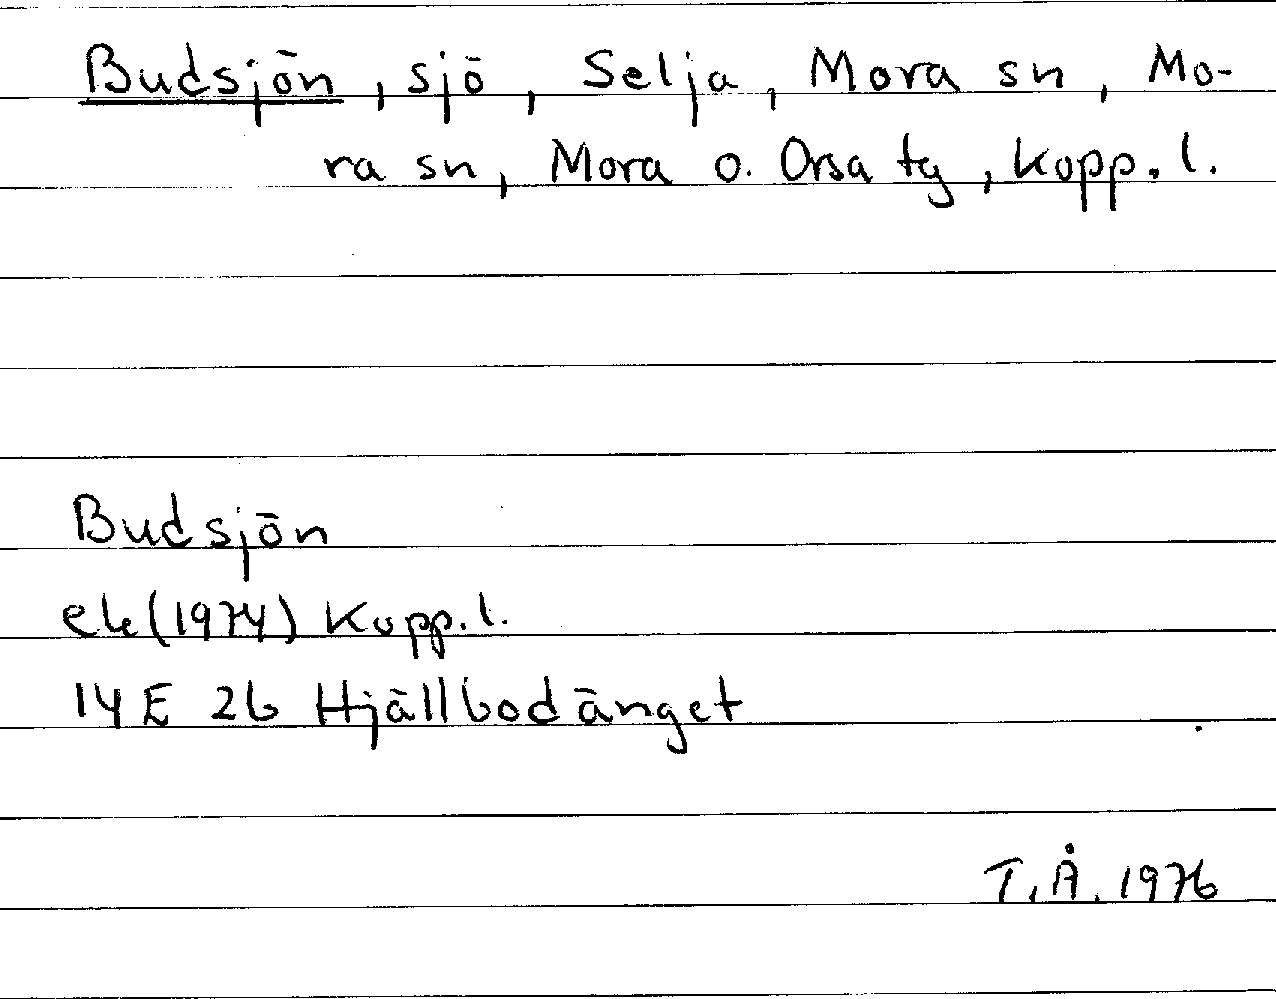 Budsjön, sjö, Selja, Mora sn, Mo-
ra sn, Mora o. Orsa tg, Kopp. l.
Budsjön
ek (1974) Kopp. l.
14 E 2b Hjällbodänget
T.Å. 1976